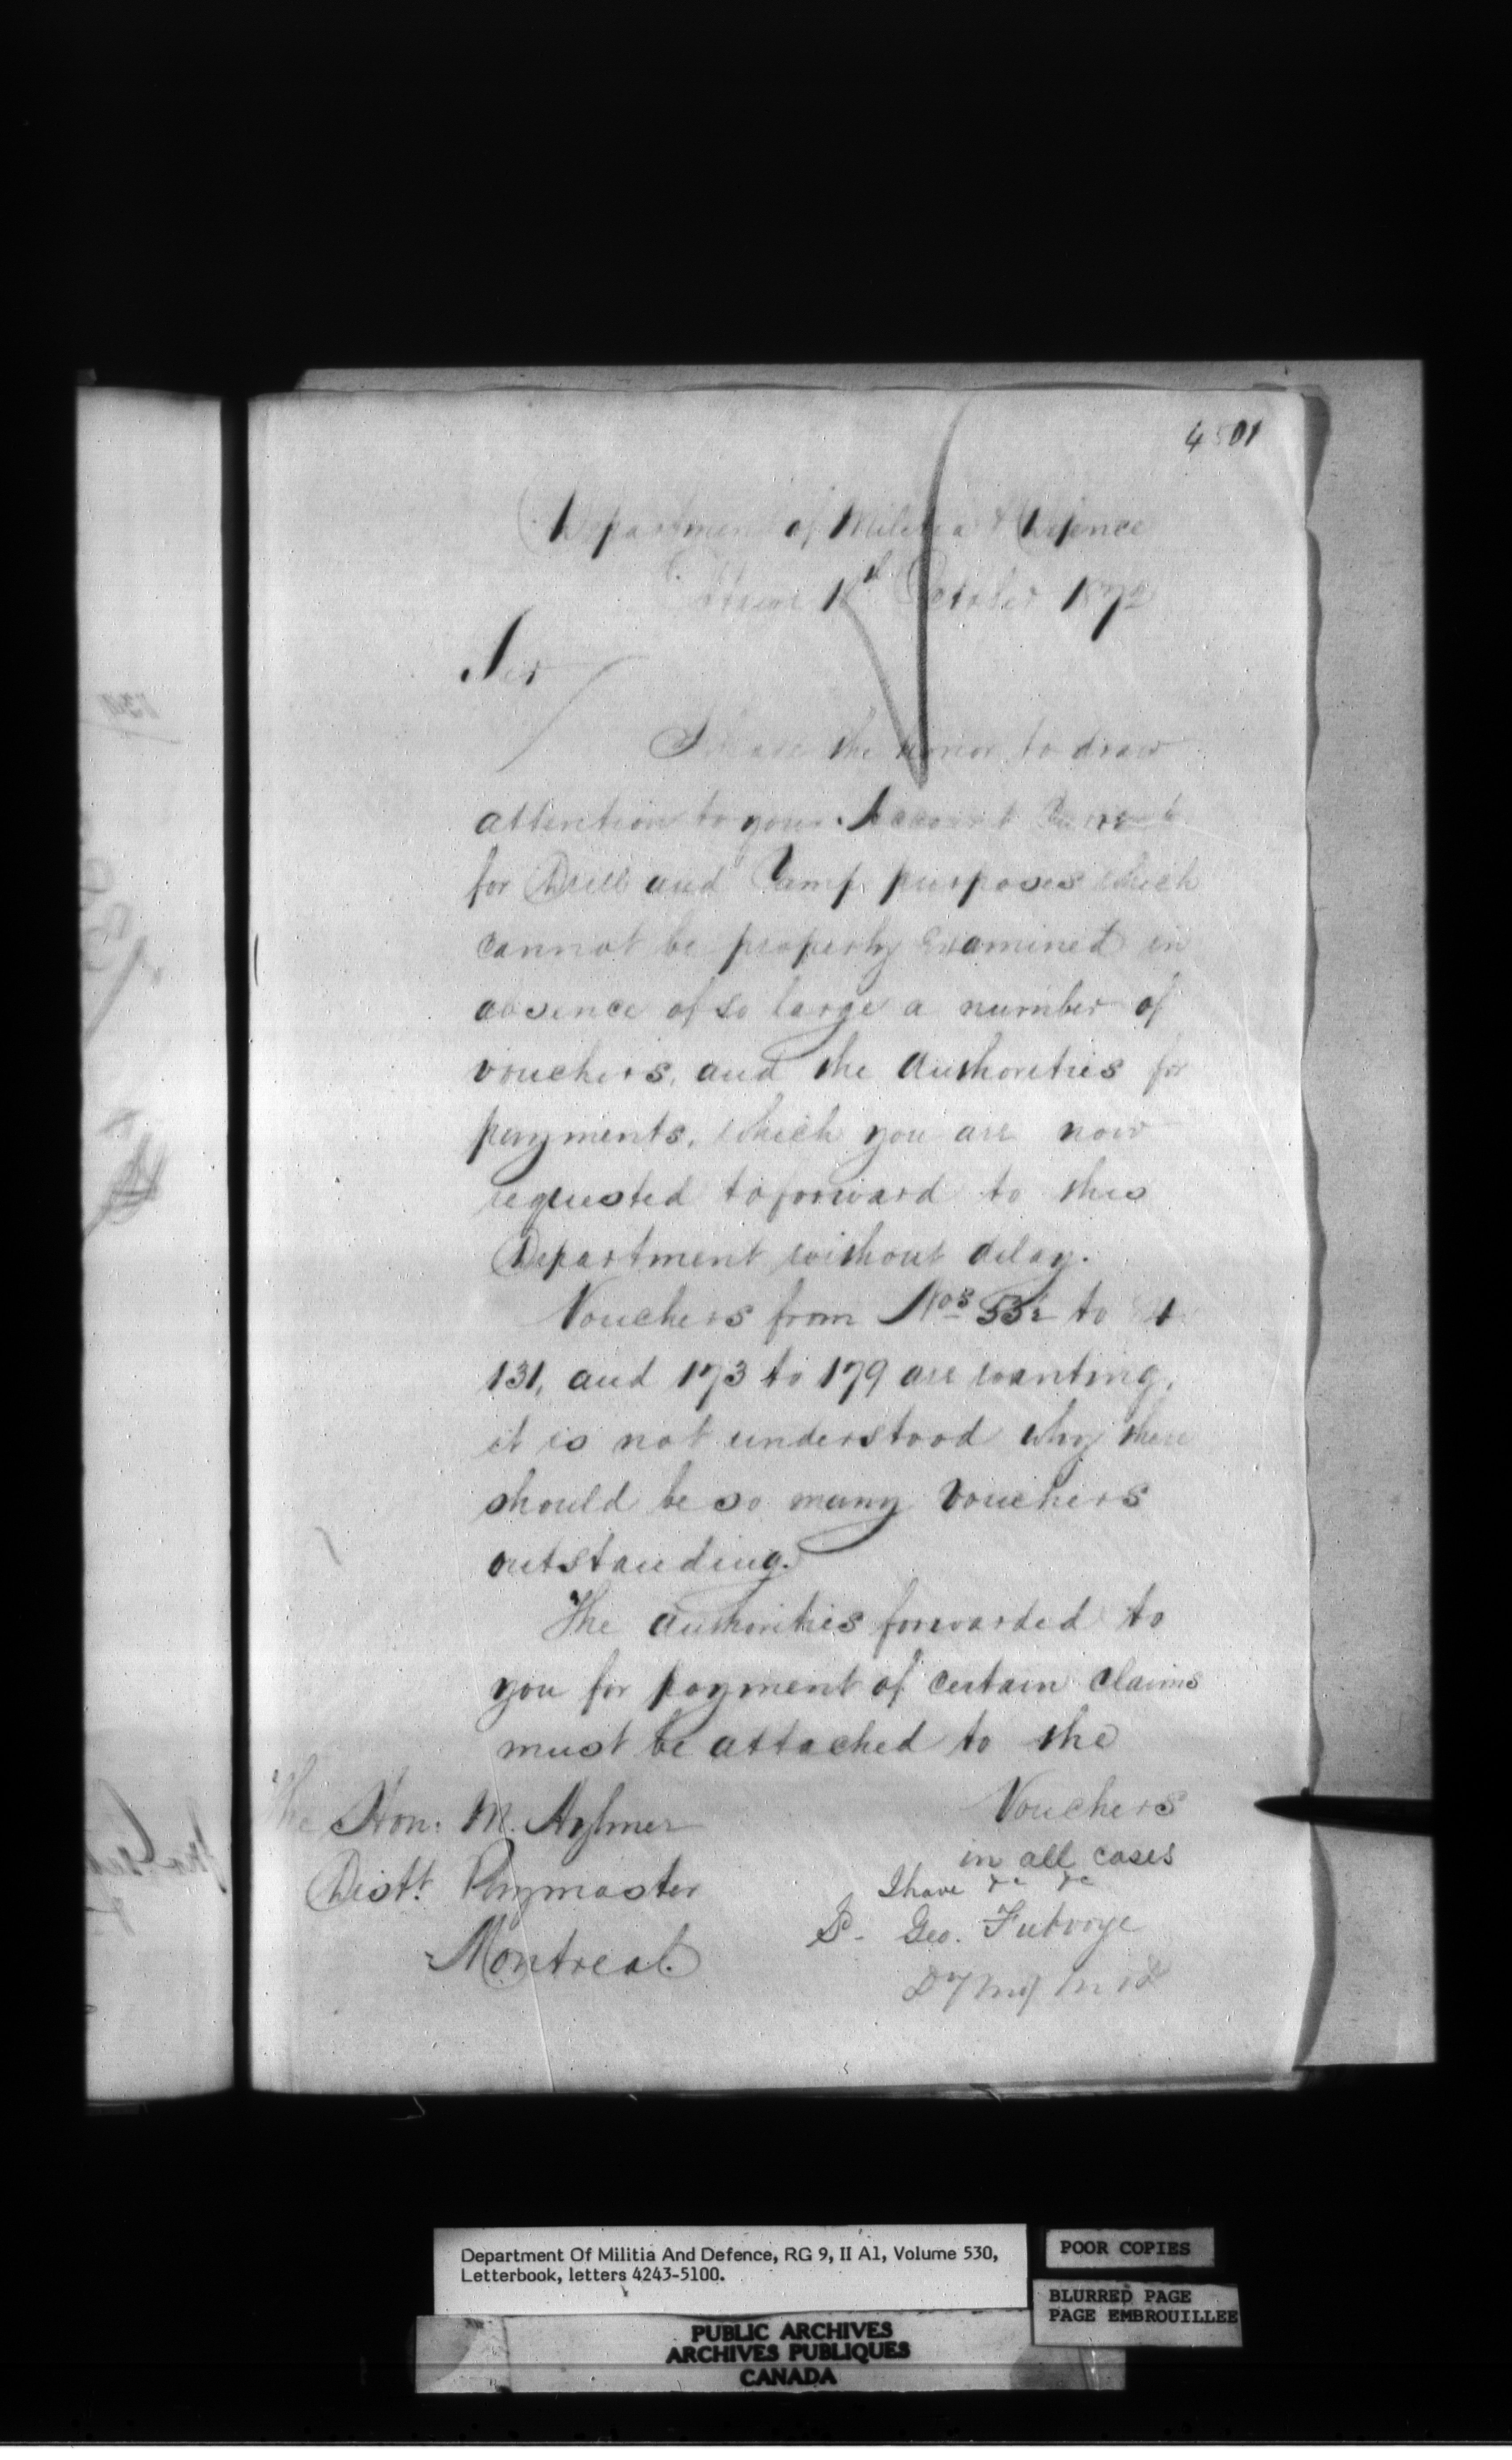 4501
Department of Militia & Defence
Ottawa October 1872
Sir
I have the honor to draw
attention to your Account Current
for Drill and Camp purposes which
cannot be properly Examined in
absence of so large a number of
vouchers, and the Authorities for
payments, which you are now
requested to forward to this
Department without delay.
Vouchers from Nos to
131, and 173 to 179 are wanting,
it is not understood why there
should be so many Vouchers
outstanding.
The authorities forwarded to
you for payment of certain claims
must be attached to the
Vouchers
in all cases
I have &c &c
Geo. Futvoye
The Hon: M. Aylmer
Distt. Paymaster
Montreal
Department Of Militia And Defence, RG 9, II A1, Volume 530,
Letterbook, letters 4243-5100.
POOR COPIES
BLURRED PAGE
PAGE EMBROUILLEE
PUBLIC ARCHIVES
ARCHIVES PUBLIQUES
CANADA